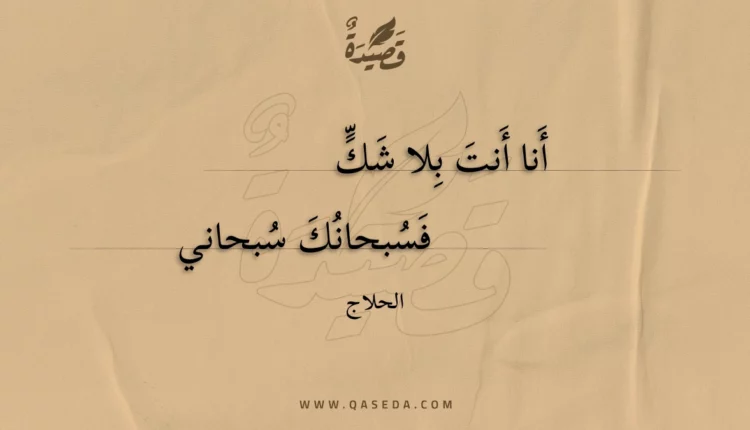 قَصِيدَةٌ
أَنا أَنتَ بِلا شَكٍّ
فَسُبحانُكَ سُبحاني
الحلاج
WWW.QASEDA.COM